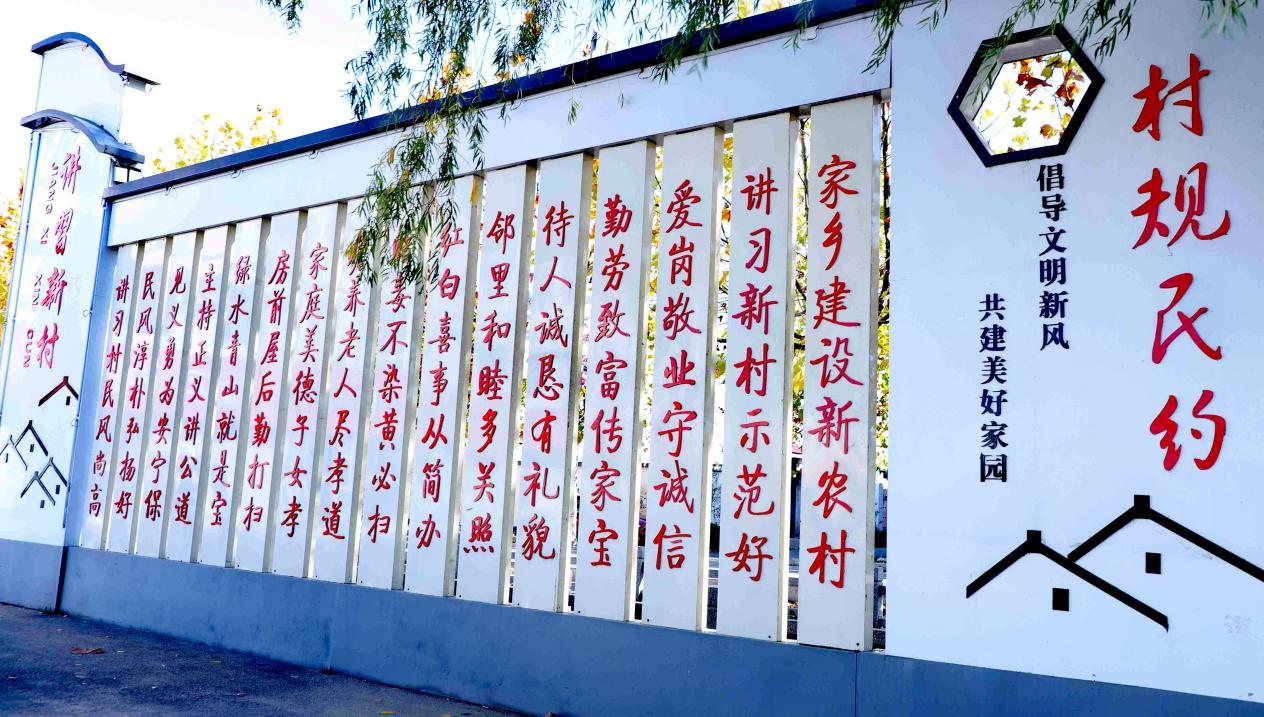 村规民约
倡导文明新风
共建美好家园
家乡建设新农村
讲习新村示范好
爱岗敬业守诚信
勤劳致富传家宝
待人诚恳有礼貌
邻里和睦多关照
红白喜事从简办
毒不染黄必扫
养老人尽孝道
家庭美德子女孝
房前屋后勤打扫
绿水青山就是宝
主持正义讲公道
见义勇为安宁保
民风淳朴弘扬好
讲习村民风尚高
讲習新村